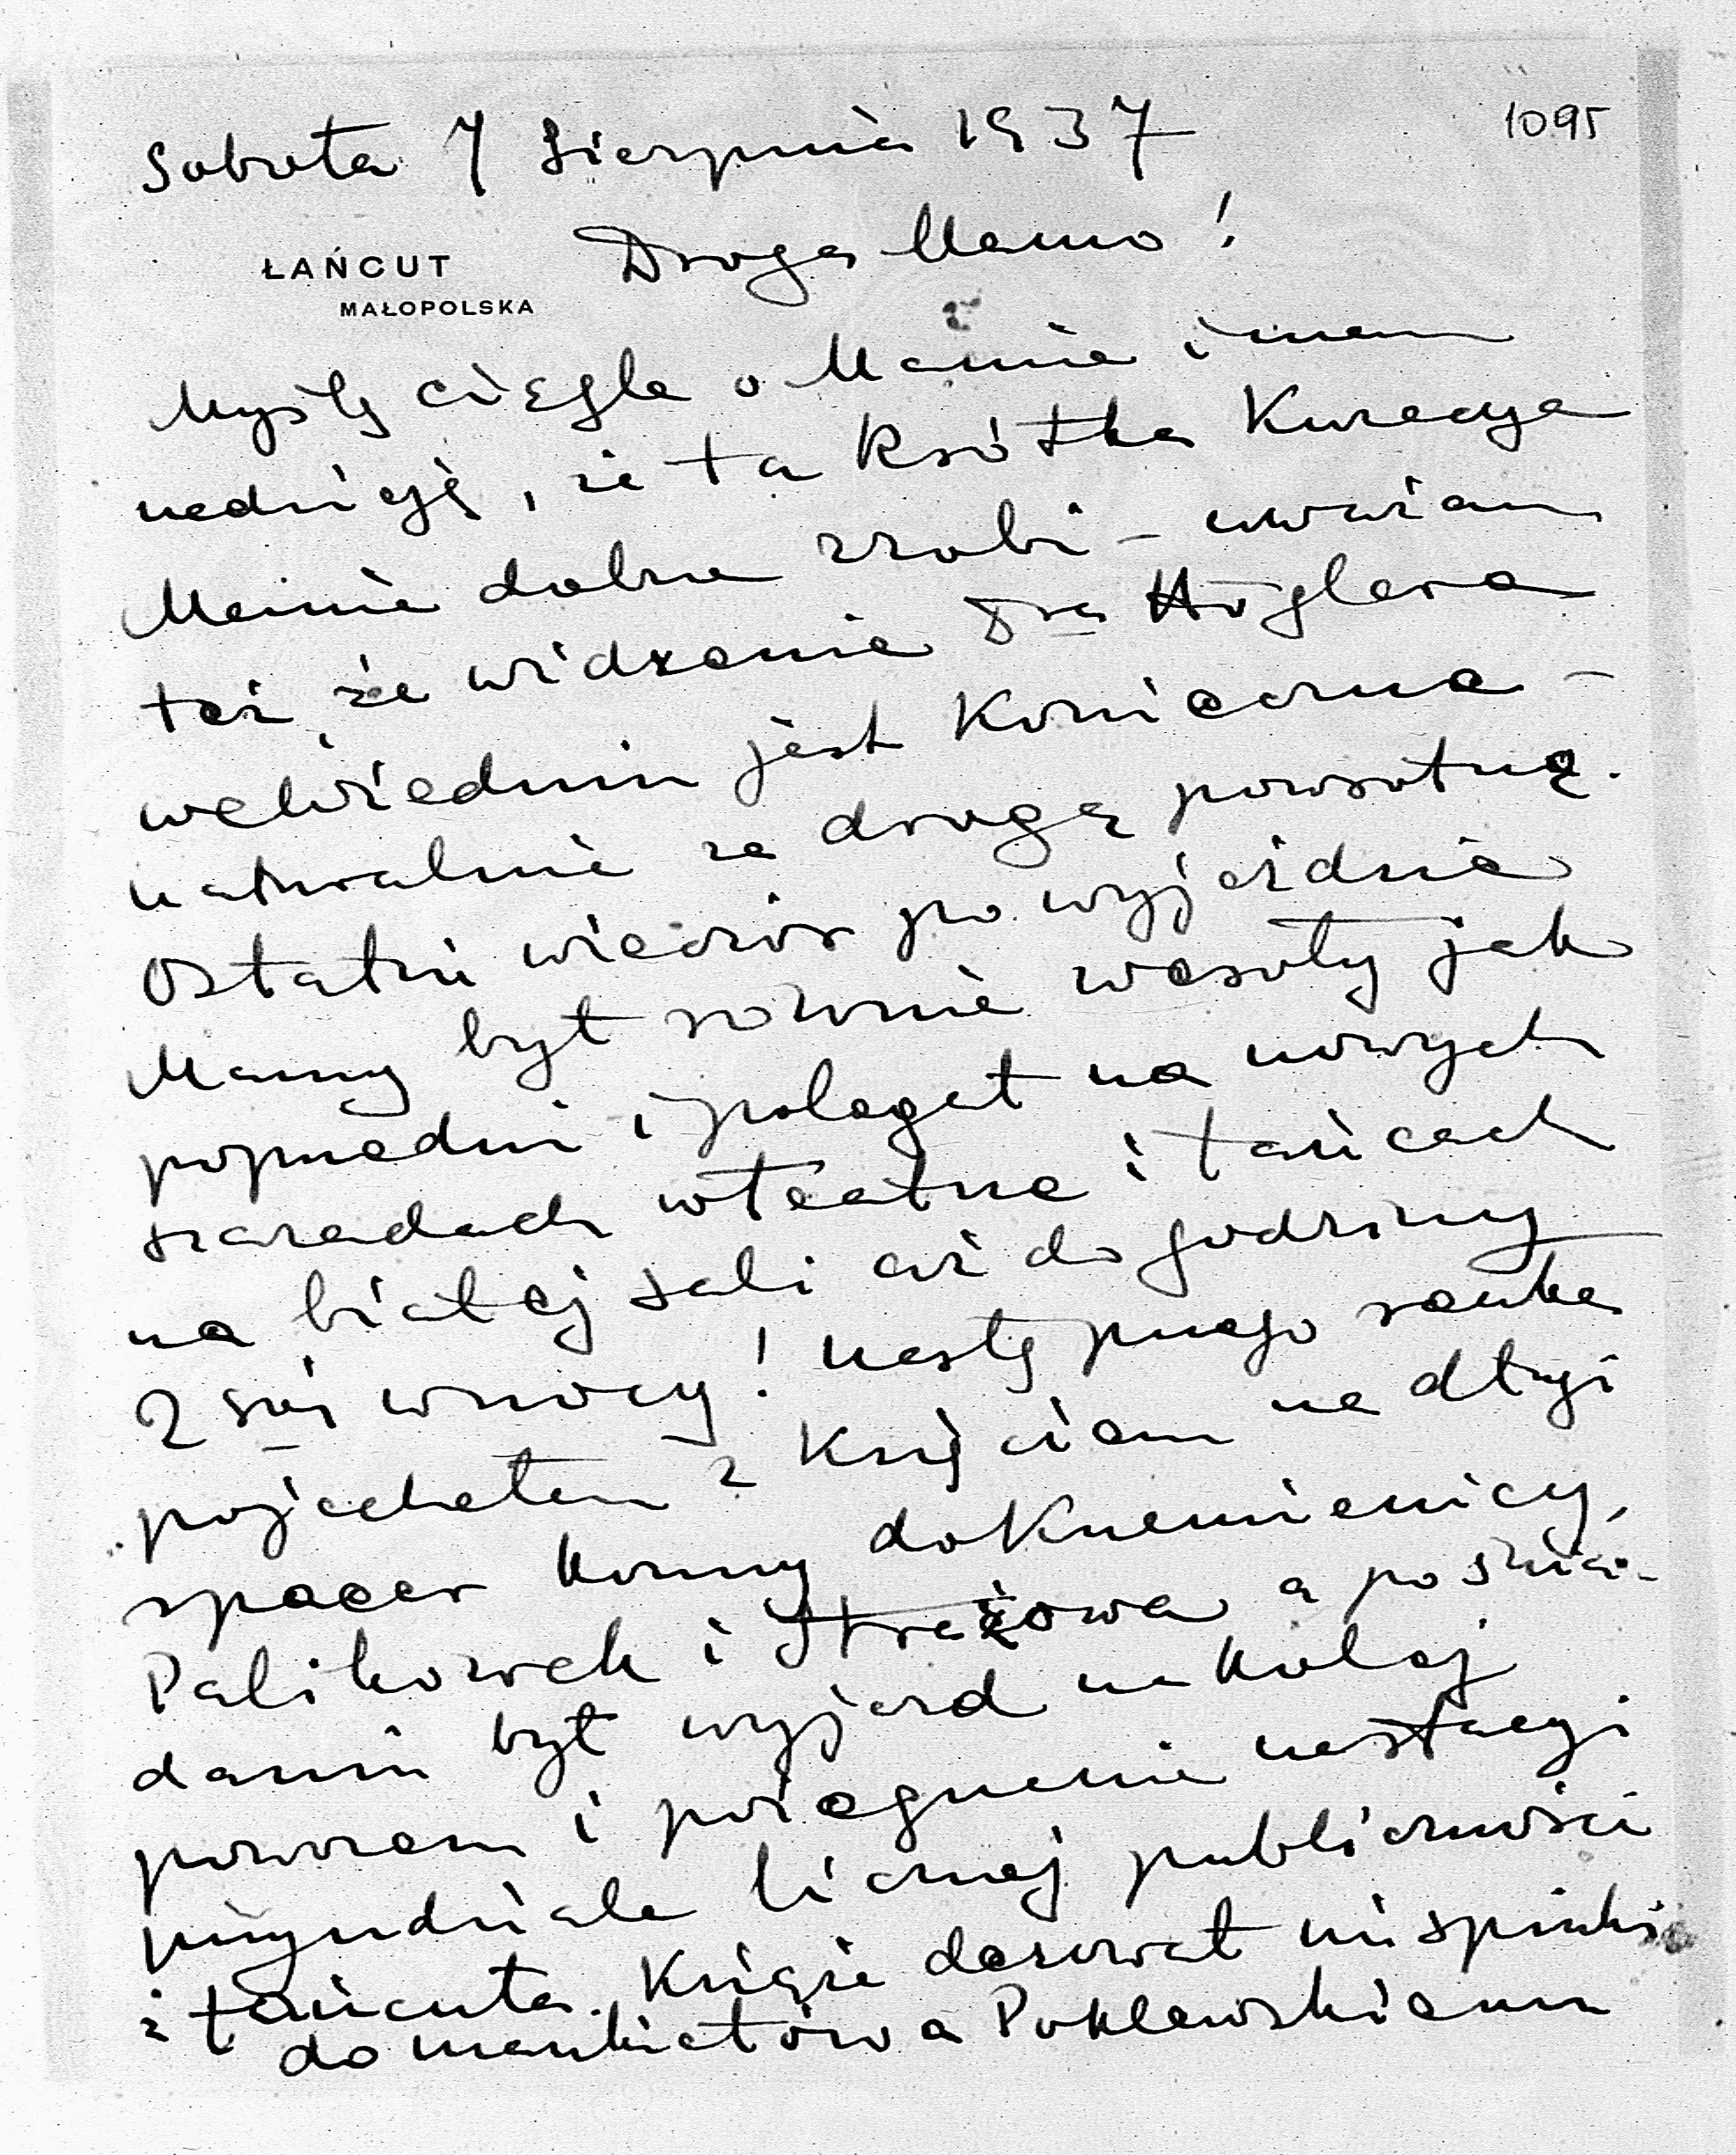 1095
Sobota 7 Sierpnia 1937
ŁAŃCUT
MAŁOPOLSKA
Droga Mamo!
Myślę ciągle o Mamie i mam
nadzieję, że ta krótka Kuracya
Mamie dobrze zrobi - uważam
też, że widzenie Dra Höglera
we Wiedniu jest Konieczne -
naturalnie za drogą powrotną.
Ostatni wieczór po wyjeździe
Mamy był równie wesoły jak
poprzedni i polegał na nowych
szaradach w teatrze i tańcach
na białej sali aż do godziny
2giej w nocy! Następnego ranka
pojechałem z Księciem na długi
spacer konny do Kraemienicy,
Palikówek i Strażowa a po śnia-
daniu był wyjazd na kolej
powozem i pożegnanie na stacyi
przy udziale licznej publiczności
z Łańcuta. Książe darował mi spinki
do mankietów a Poklewskiemu